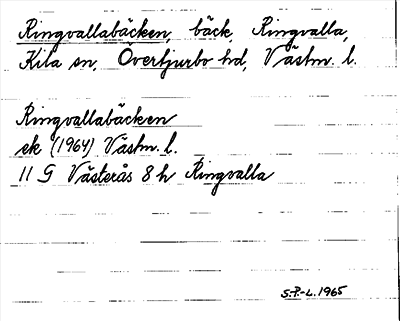 Ringvallabäcken, bäck, Ringvalla,
Kila sn, Övertjurbo hd, Västm. l.
Ringvallabäcken
ek (1964) Västm. l.
11 G Västerås 8 h Ringvalla
S.P-L. 1965